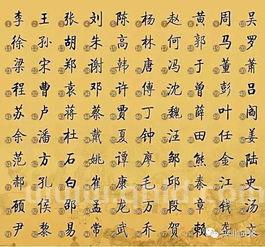 李 王 张 刘 陈 杨 赵 黄 周 吴
徐 孙 胡 朱 高 林 何 郭 马 罗
梁 宋 郑 谢 韩 唐 冯 于 董 萧
程 曹 袁 邓 许 傅 沈 曾 彭 吕
苏 卢 蒋 蔡 贾 丁 魏 薛 叶 阎
余 潘 杜 戴 夏 钟 汪 田 任 姜
范 方 石 姚 谭 廖 邹 熊 金 陆
郝 孔 白 崔 康 毛 邱 秦
顾 侯 邵 孟 龙 万 段
尹 黎 易 常 武 乔 贺 赖